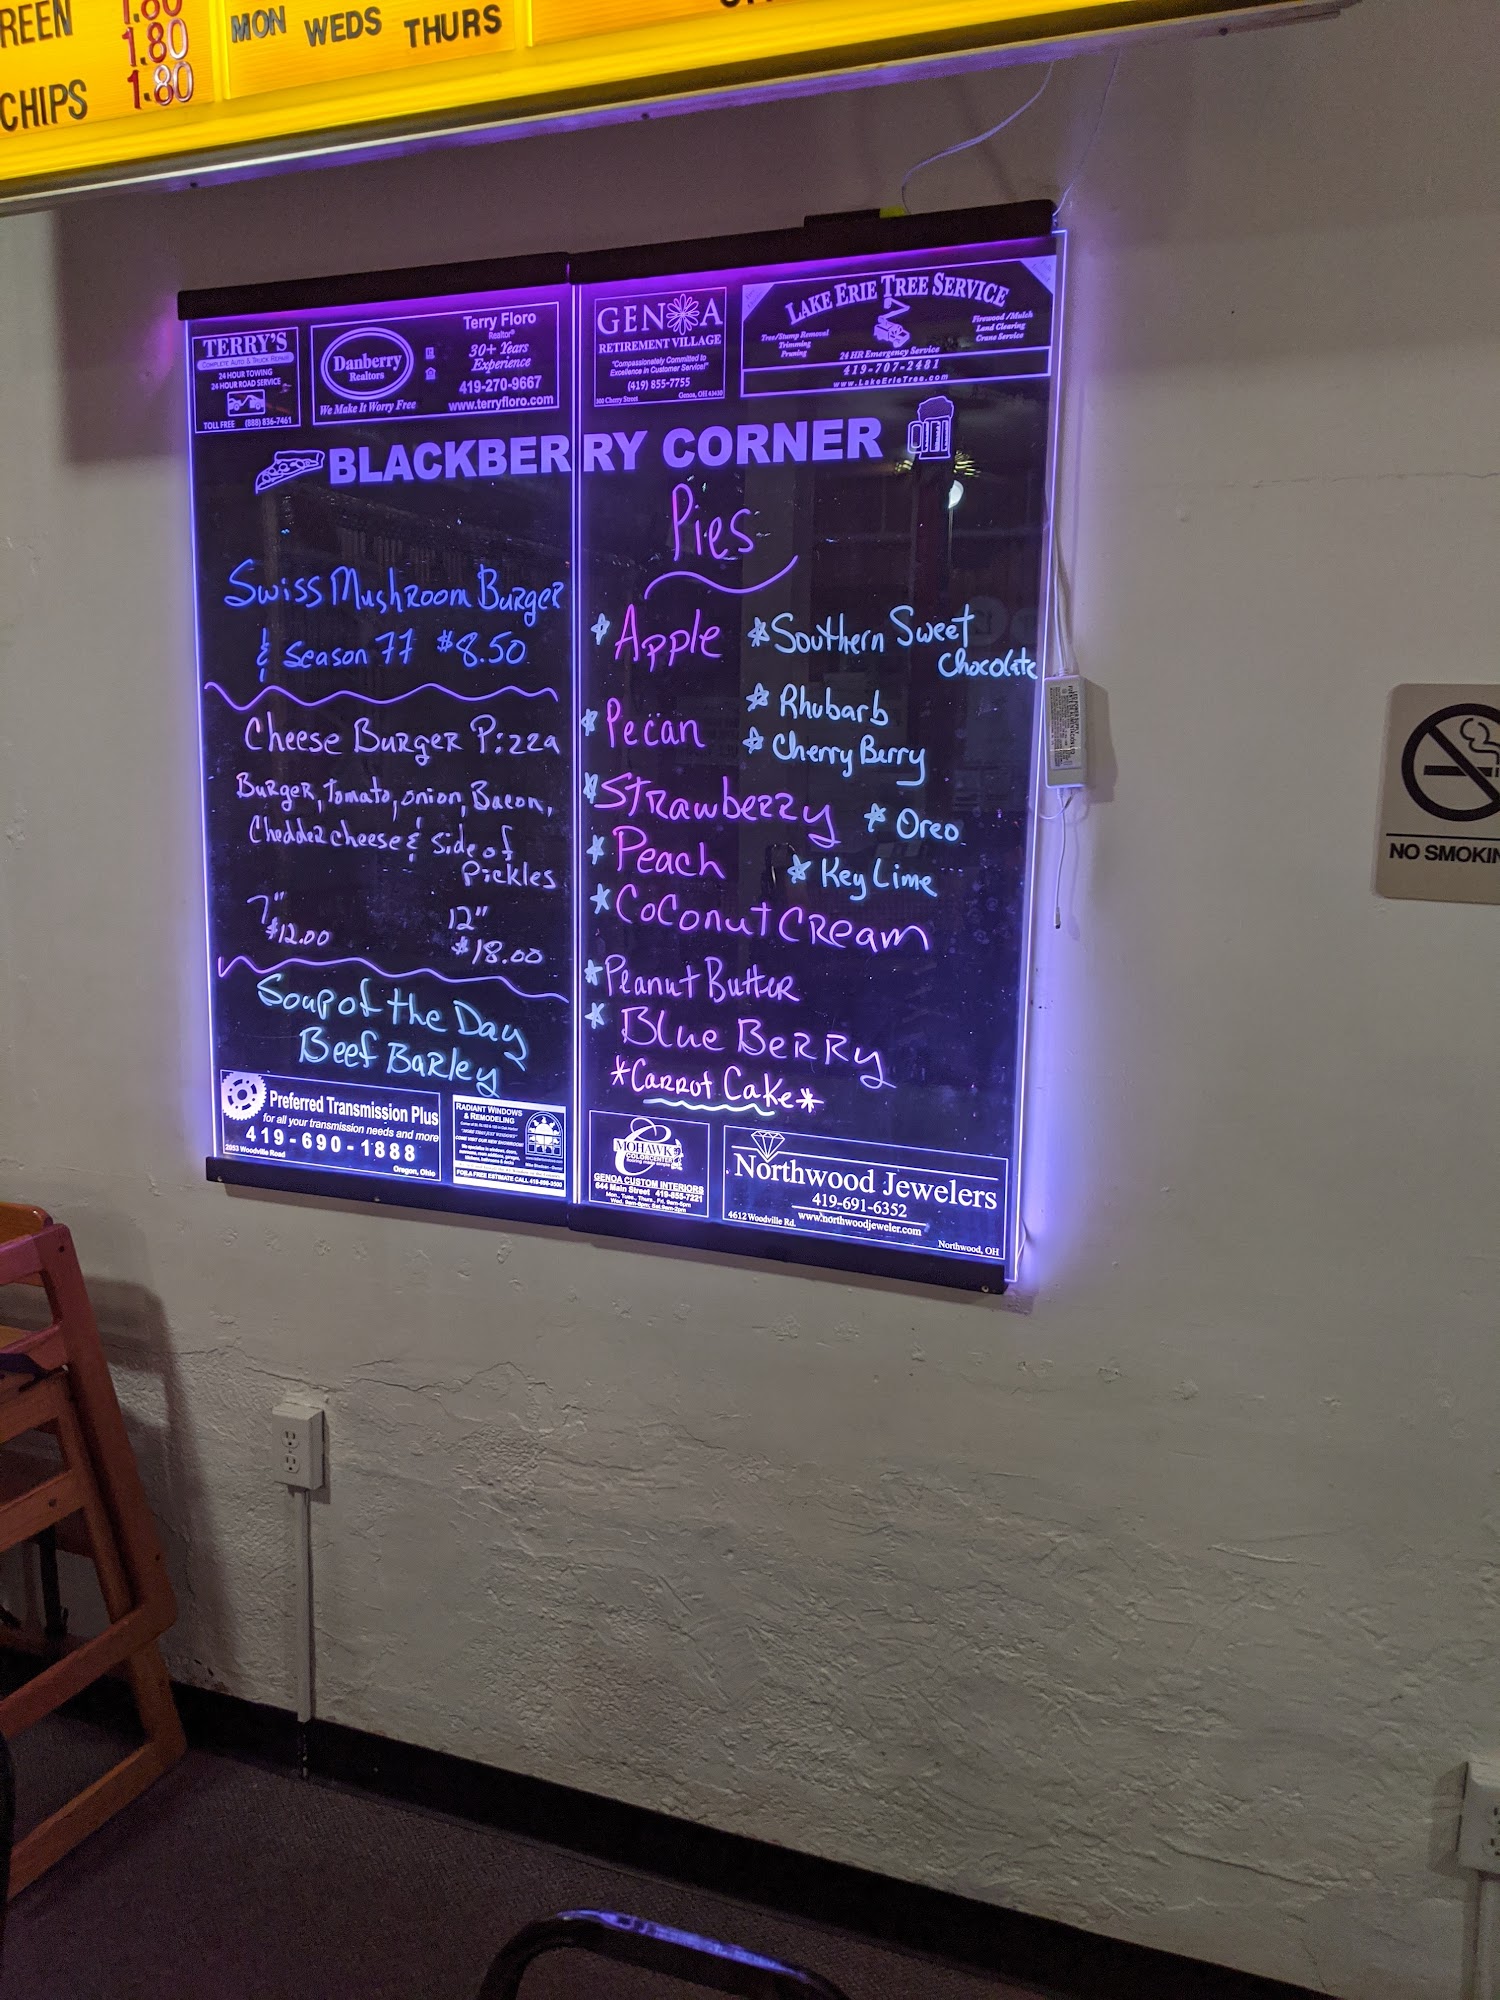 REEN 1.80
1.80
CHIPS 1.80
MON WEDS THURS
TERRY'S
COMPLETE AUTO & TRUCK REPAIR
24 HOUR TOWING
24 HOUR ROAD SERVICE
TOLL FREE (888) 836-7461
Danberry
Realtors
We Make It Worry Free
Terry Floro
Realtor®
30+ Years
Experience
419-270-9667
www.terryfloro.com
GENOA
RETIREMENT VILLAGE
"Compassionately Committed to
Excellence in Customer Service!"
(419) 855-7755
300 Cherry Street Genoa, OH 43430
LAKE ERIE TREE SERVICE
Tree/Stump Removal
Trimming
Pruning
Firewood/Mulch
Land Clearing
Crane Service
24 HR Emergency Service
419-707-2481
www.LakeErieTree.com
BLACKBERRY CORNER
Swiss Mushroom Burger
& Season 77 $8.50
Cheese Burger Pizza
Burger, Tomato, onion, Bacon,
Chedder cheese & side of
Pickles
7" 12"
$12.00 $18.00
Soup of the Day
Beef Barley
Pies
* Apple
* Pecan
* Strawberry
* Peach
* Coconut Cream
* Peanut Butter
* Blue Berry
*Carrot Cake*
* Southern Sweet
Chocolate
* Rhubarb
* Cherry Berry
* Oreo
* Key Lime
Preferred Transmission Plus
for all your transmission needs and more
419-690-1888
2853 Woodville Road Oregon, Ohio
RADIANT WINDOWS
& REMODELING
COME VISIT OUR NEW SHOWROOM
FOR A FREE ESTIMATE CALL 419-898-3500
MOHAWK
COLORCENTER
GENOA CUSTOM INTERIORS
644 Main Street 419-855-7221
Mon., Tues., Thurs., Fri. 9am-5pm
Wed. 9am-8pm; Sat. 9am-2pm
Northwood Jewelers
419-691-6352
4612 Woodville Rd. www.northwoodjeweler.com
Northwood, OH
NO SMOKIN